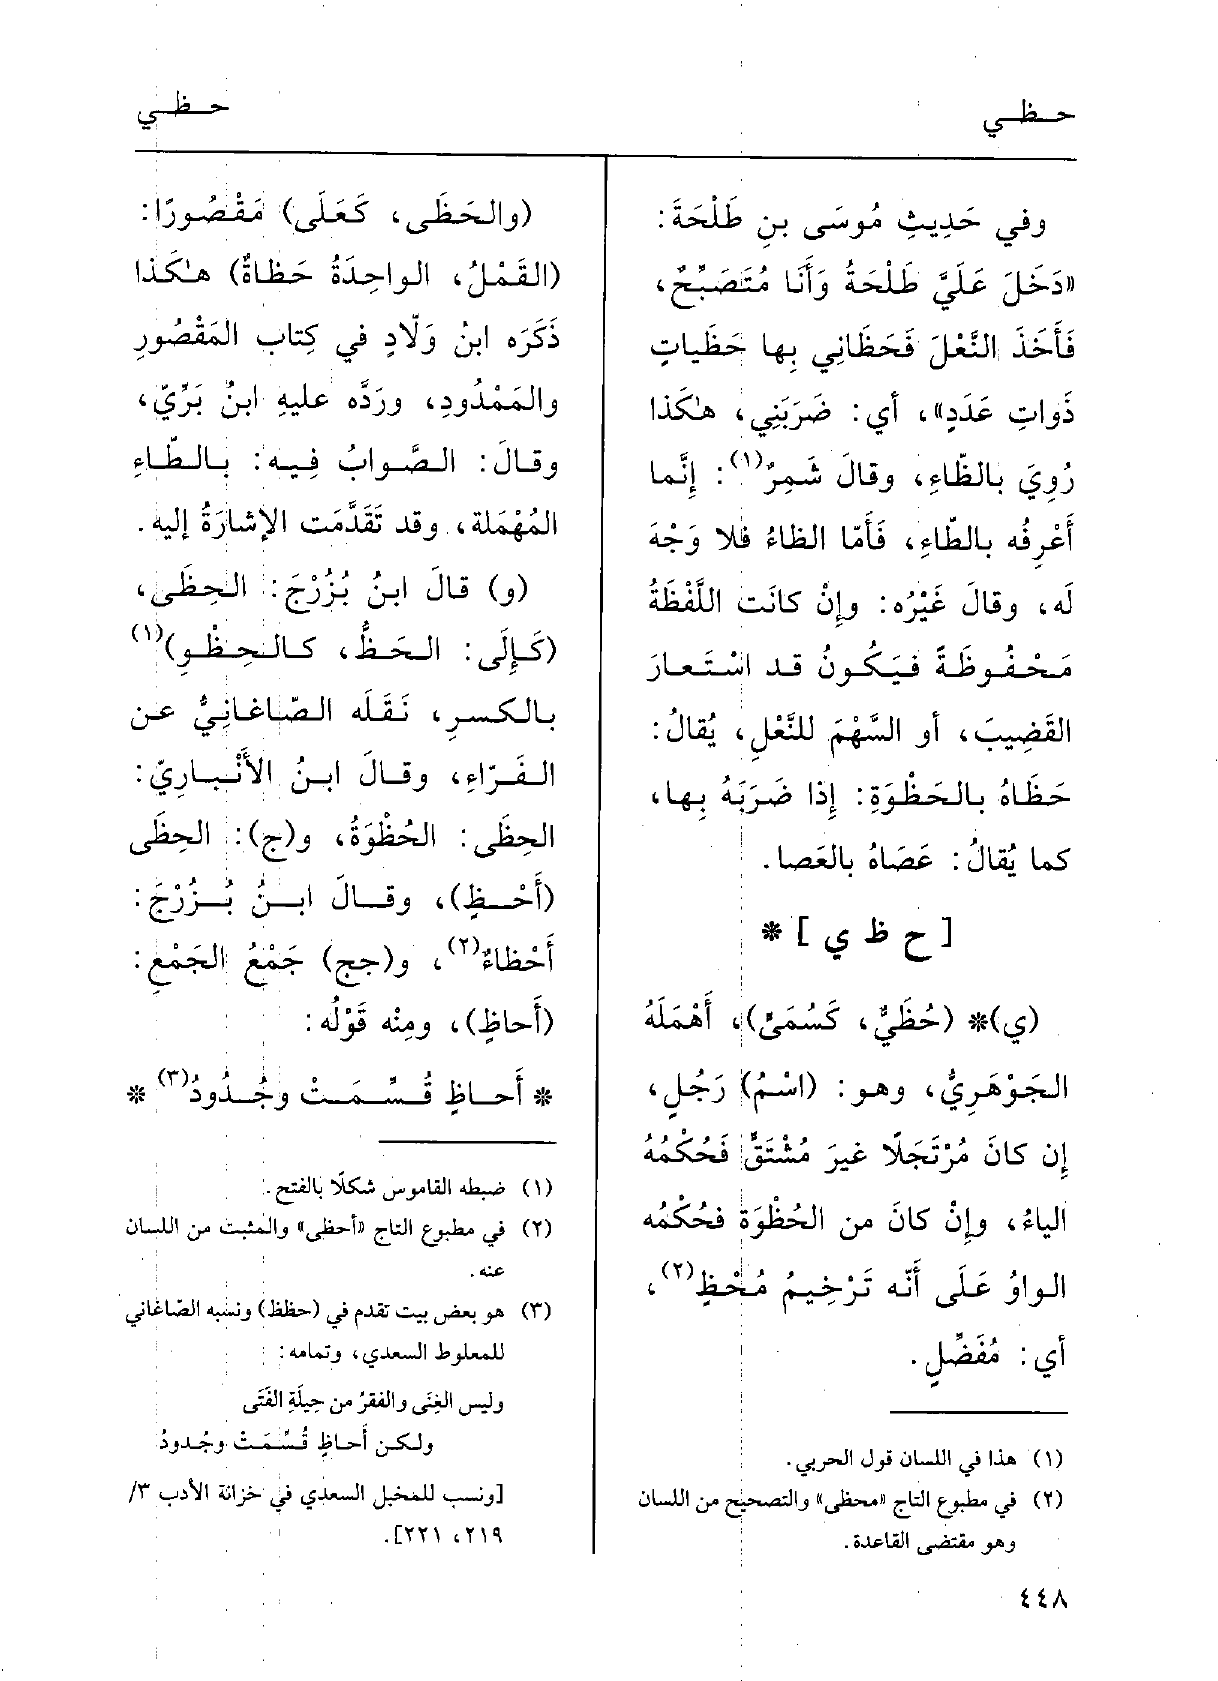 حظي
حظي
وفي حَدِيثِ مُوسَى بنِ طَلْحَةَ:
«دَخَلَ عَلَيَّ طَلْحَةُ وَأَنَا مُتَصَبِّحٌ،
فَأَخَذَ النَّعْلَ فَحَظَانِي بِها حَظَياتٍ
ذَواتِ عَدَدٍ»، أي: ضَرَبَنِي، هٰكَذا
رُوِيَ بالظّاءِ، وقالَ شَمِرٌ(١): إِنَّما
أَعْرِفُه بالطّاءِ، فَأَمّا الظاءُ فلا وَجْهَ
لَه، وقالَ غَيْرُه: وإِنْ كانَت اللَّفْظَةُ
مَحْفُوظَةً فيَكُونُ قد اسْتَعارَ
القَضِيبَ، أو السَّهْمَ للنَّعْلِ، يُقالُ:
حَظَاهُ بالحَظْوَةِ: إِذا ضَرَبَهُ بِها،
كما يُقالُ: عَصَاهُ بالعَصا.
[ ح ظ ي ] *
(ي)* (حُظَيٌّ، كَسُمَيٍّ)، أَهْمَلَهُ
الجَوْهَرِيُّ، وهو: (اسْمُ) رَجُلٍ،
إِن كانَ مُرْتَجَلًا غيرَ مُشْتَقٍّ فَحُكْمُهُ
الياءُ، وإِنْ كانَ من الحُظْوَةِ فحُكْمُه
الواوُ عَلَى أَنّه تَرْخِيمُ مُحْظٍ(٢)،
أي: مُفَضِّلٍ.
(١) هذا في اللسان قول الحربي.
(٢) في مطبوع التاج «محظى» والتصحيح من اللسان
وهو مقتضى القاعدة.
(والحَظَى، كَعَلَى) مَقْصُورًا:
(القَمْلُ، الواحِدَةُ حَظاةٌ) هٰكَذا
ذَكَرَه ابنُ وَلّادٍ في كِتاب المَقْصُورِ
والمَمْدُودِ، ورَدَّه عليهِ ابنُ بَرِّيّ،
وقالَ: الصَّوابُ فِيه: بالطّاءِ
المُهْمَلة، وقد تَقَدَّمَت الإِشارَةُ إليه.
(و) قالَ ابنُ بُزُرْجَ: الحِظَى،
(كَإِلَى: الحَظُّ، كالحِظْوِ)(١)
بالكسرِ، نَقَلَه الصّاغانِيُّ عن
الفَرّاءِ، وقالَ ابنُ الأَنْبارِيّ:
الحِظَى: الحُظْوَةُ، و(ج): الحِظَى
(أَحْظٍ)، وقالَ ابنُ بُزُرْجَ:
أَحْظاءٌ(٢)، و(جج) جَمْعُ الجَمْعِ:
(أَحاظٍ)، ومِنْه قَوْلُه:
* أَحاظٍ قُسِّمَتْ وجُدُودُ(٣) *
(١) ضبطه القاموس شكلًا بالفتح.
(٢) في مطبوع التاج «أحظى» والمثبت من اللسان
عنه.
(٣) هو بعض بيت تقدم في (حظظ) ونسبه الصّاغاني
للمعلوط السعدي، وتمامه:
وليس الغِنَى والفقرُ من حِيلَةِ الفَتَى
ولكن أَحاظٍ قُسِّمَتْ وجُدودُ
[ونسب للمخبل السعدي في خزانة الأدب ٣/
٢١٩، ٢٢١].
٤٤٨